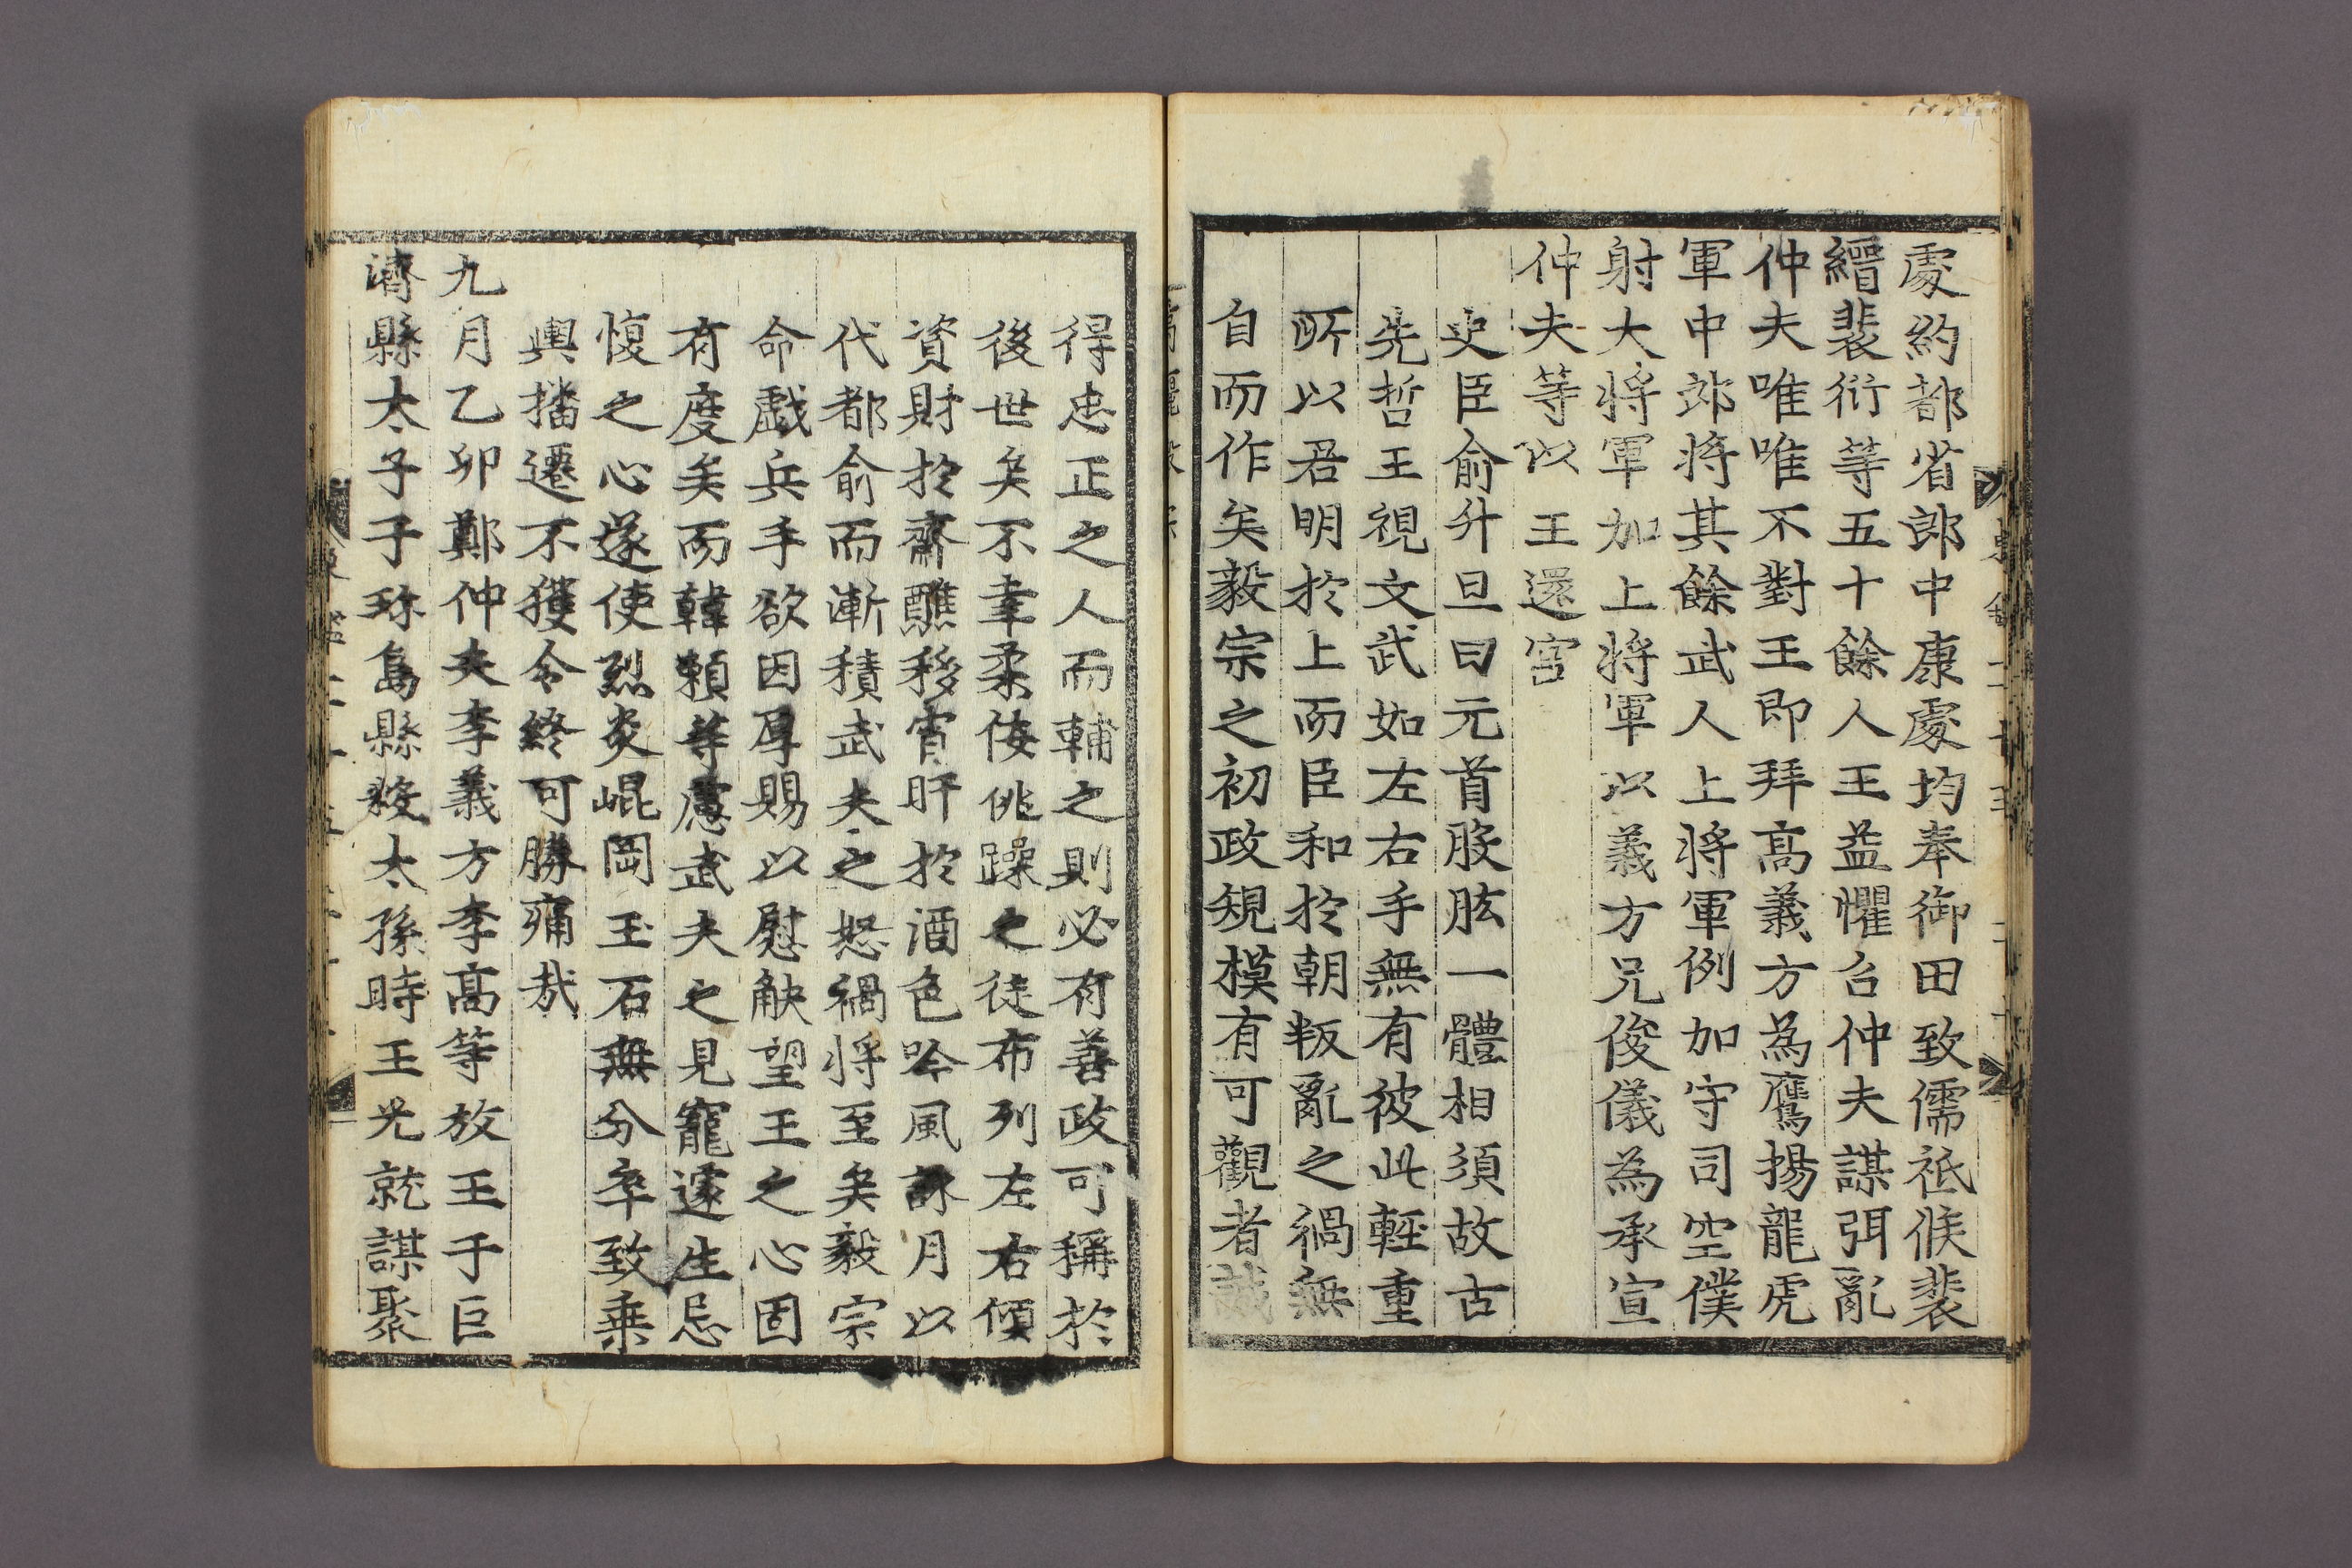 處約都省郎中康處均奉御田致儒祗候裴
縉裴衍等五十餘人王益懼召仲夫謀弭亂
仲夫唯唯不對王即拜高義方為鷹揚龍虎
軍中郎將其餘武人上將軍例加守司空僕
射大將軍加上將軍以義方兄俊儀為承宣
仲夫等以王還宮
史臣俞升旦曰元首股肱一體相須故古
先哲王視文武如左右手無有彼此輕重
所以君明於上而臣和於朝叛亂之禍無
自而作矣毅宗之初政規模有可觀者誠
得忠正之人而輔之則必有善政可稱於
後世矣不幸柔侫佻躁之徒布列左右傾
資財於齋醮移宵旰於酒色吟風詠月以
代都俞而漸積武夫之怒禍將至矣毅宗
命戲兵手欲因厚賜以慰觖望王之心固
有度矣而韓賴等慮武夫之見寵遽生忌
愎之心遂使烈炎崐岡玉石無分卒致乗
輿播遷不獲令終可勝痛哉
九月乙卯鄭仲夫李義方李高等放王于巨
濟縣太子于珎島縣殺太孫時王光就謀聚